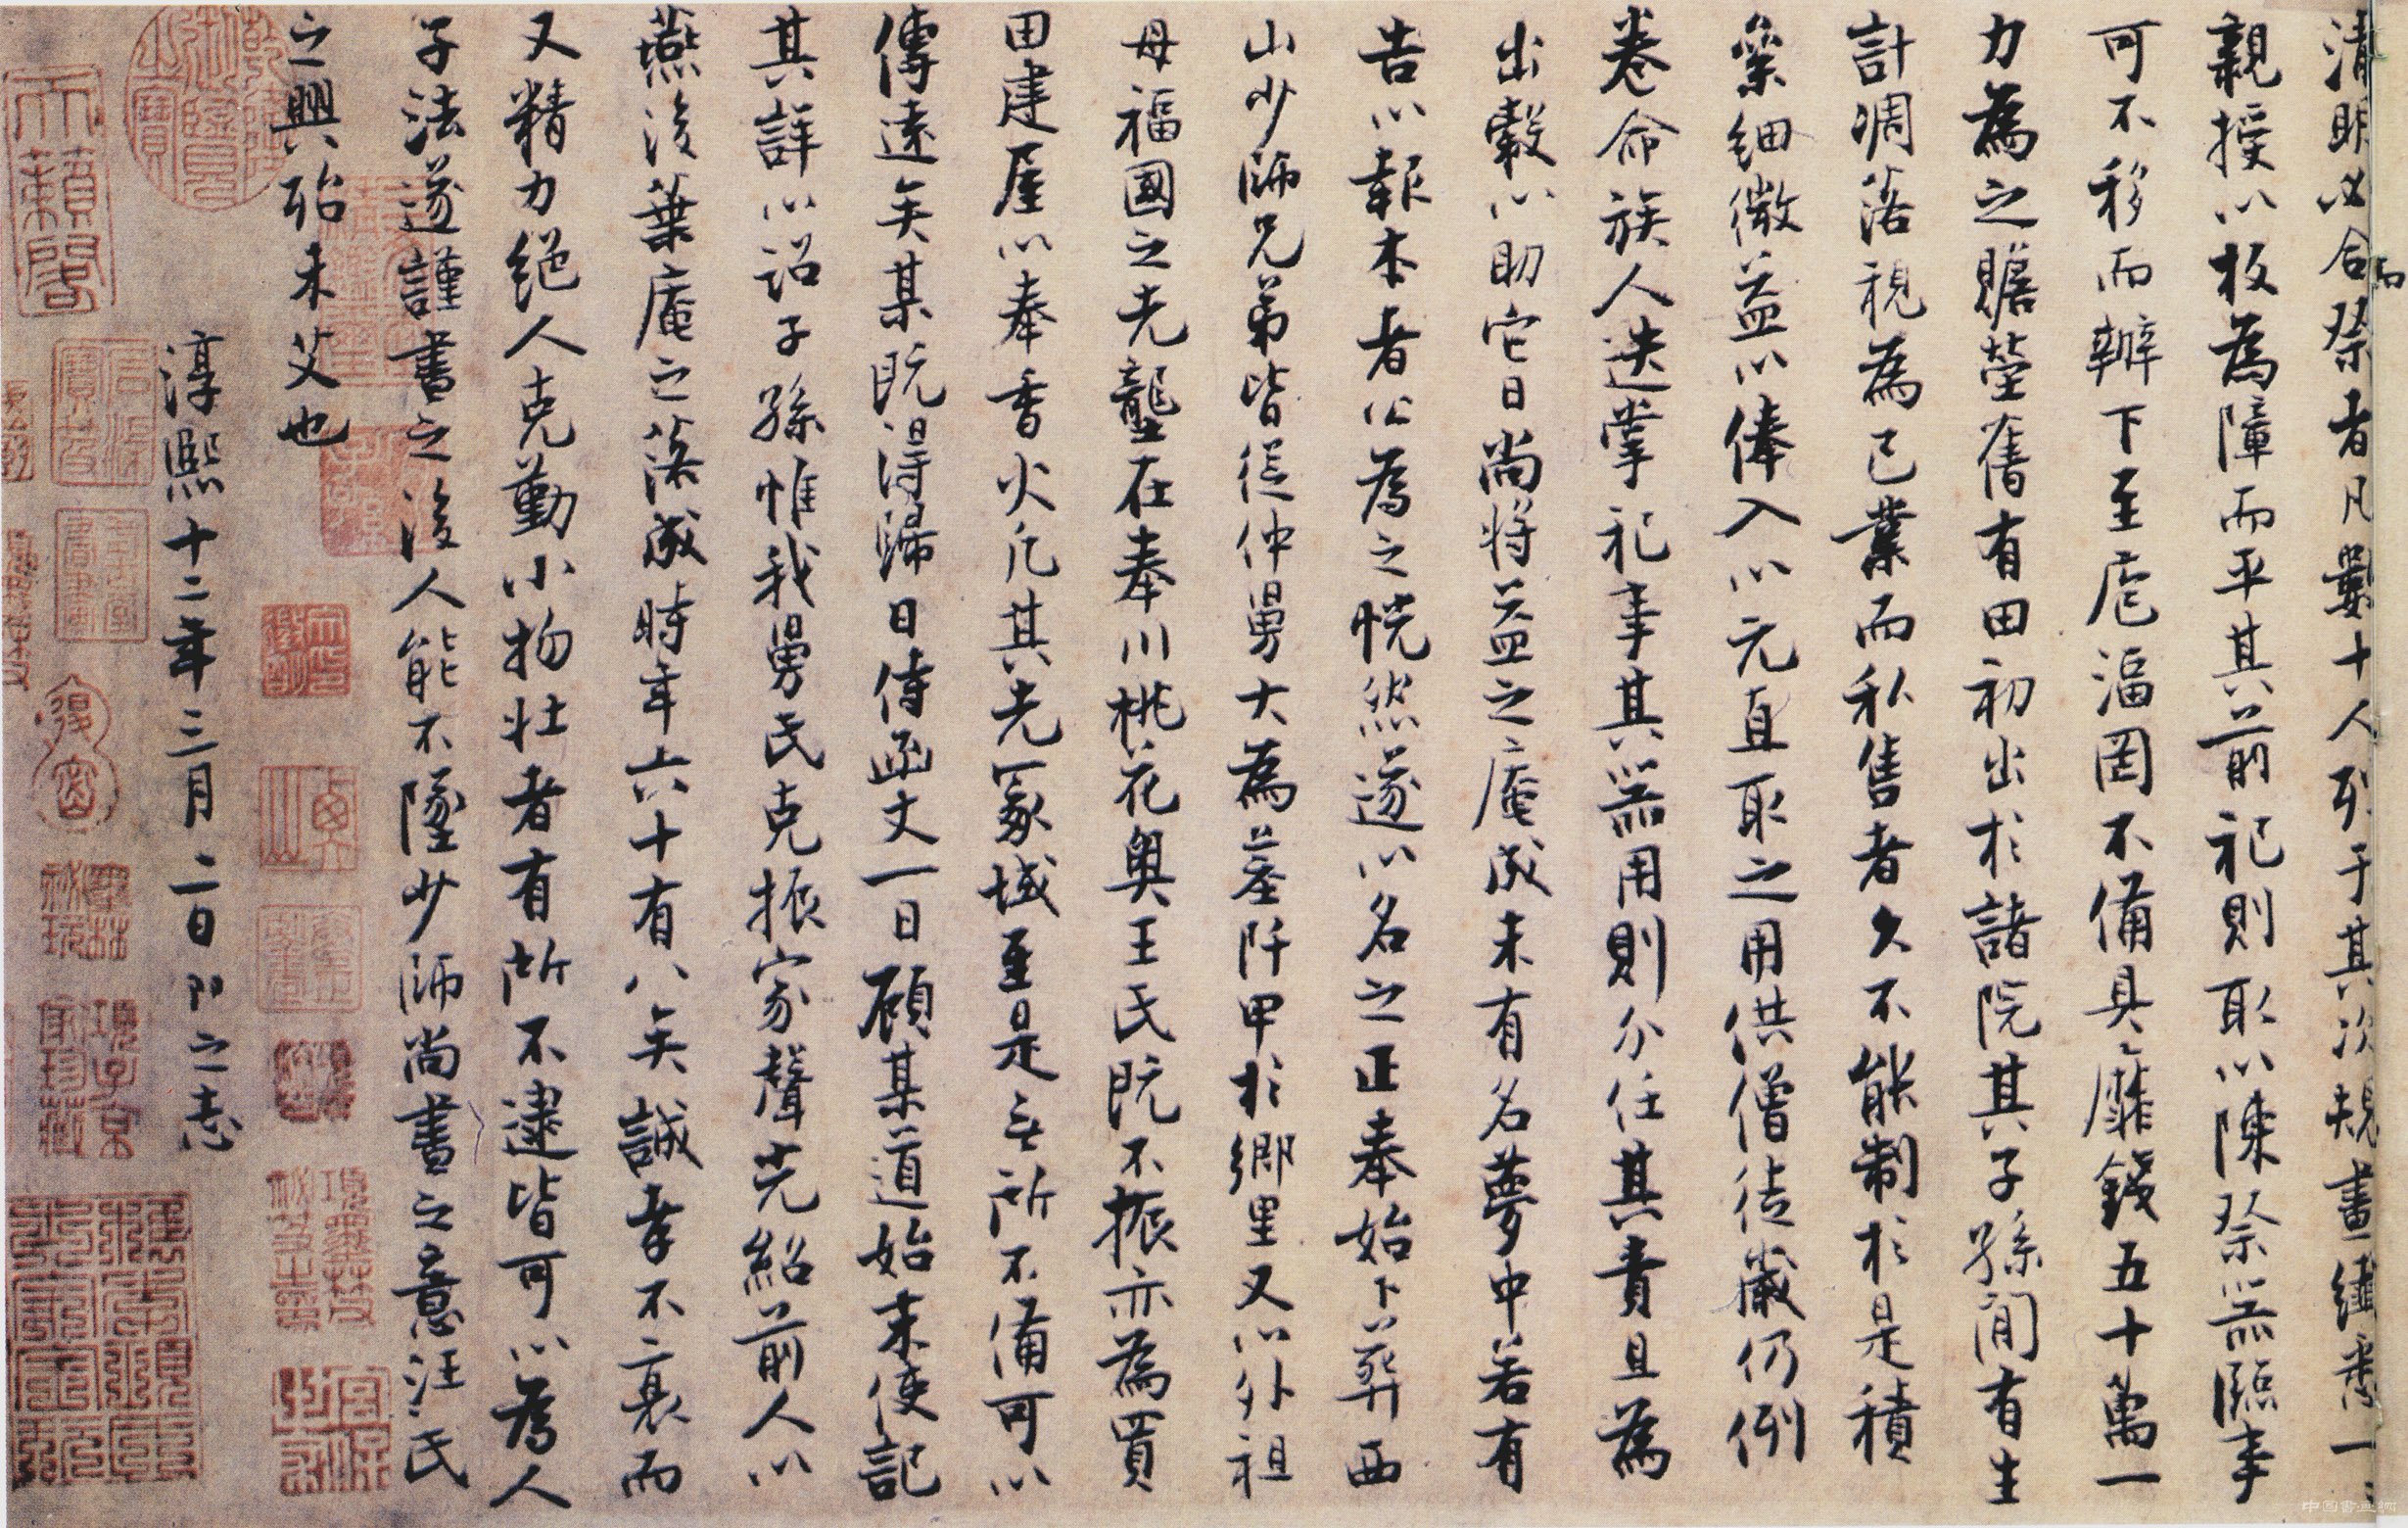 清明必合祭者凡數十人列于其次規畫纎悉一一
親授以板為障而平其前祀則取以陳祭器臨事
可不移而辦下至庖湢罔不備具靡錢五十萬一
力為之贍塋舊有田初出於諸院其子孫間有生
計凋落視為己業而私售者久不能制於是積
絫細微益以俸入以元直取之用供僧徒歲仍例
卷命族人迭掌祀事其器用則分任其責且為
出穀以助它日尚將益之庵成未有名夢中若有
告以報本者公為之恍然遂以名之正奉始卜葬西
山少師兄弟皆從仲舅大為墓阡甲於鄉里又以外祖
母福國之先壟在奉川桃花奧王氏既不振亦為買
田建屋以奉香火凡其先冢域至是無所不備可以
傳遠矣某既得歸日侍函丈一日顧某道始末使記
其詳以詔子孫惟我舅氏克振家聲光紹前人以
燕後葉庵之落成時年六十有八矣誠孝不衰而
又精力絕人克勤小物壯者有所不逮皆可以為人
子法遂謹書之後人能不墜少師尚書之意汪氏
之興殆未艾也
淳熙十二年三月二日 之志
天籟閣
乾隆御覽之寶
中国書画網